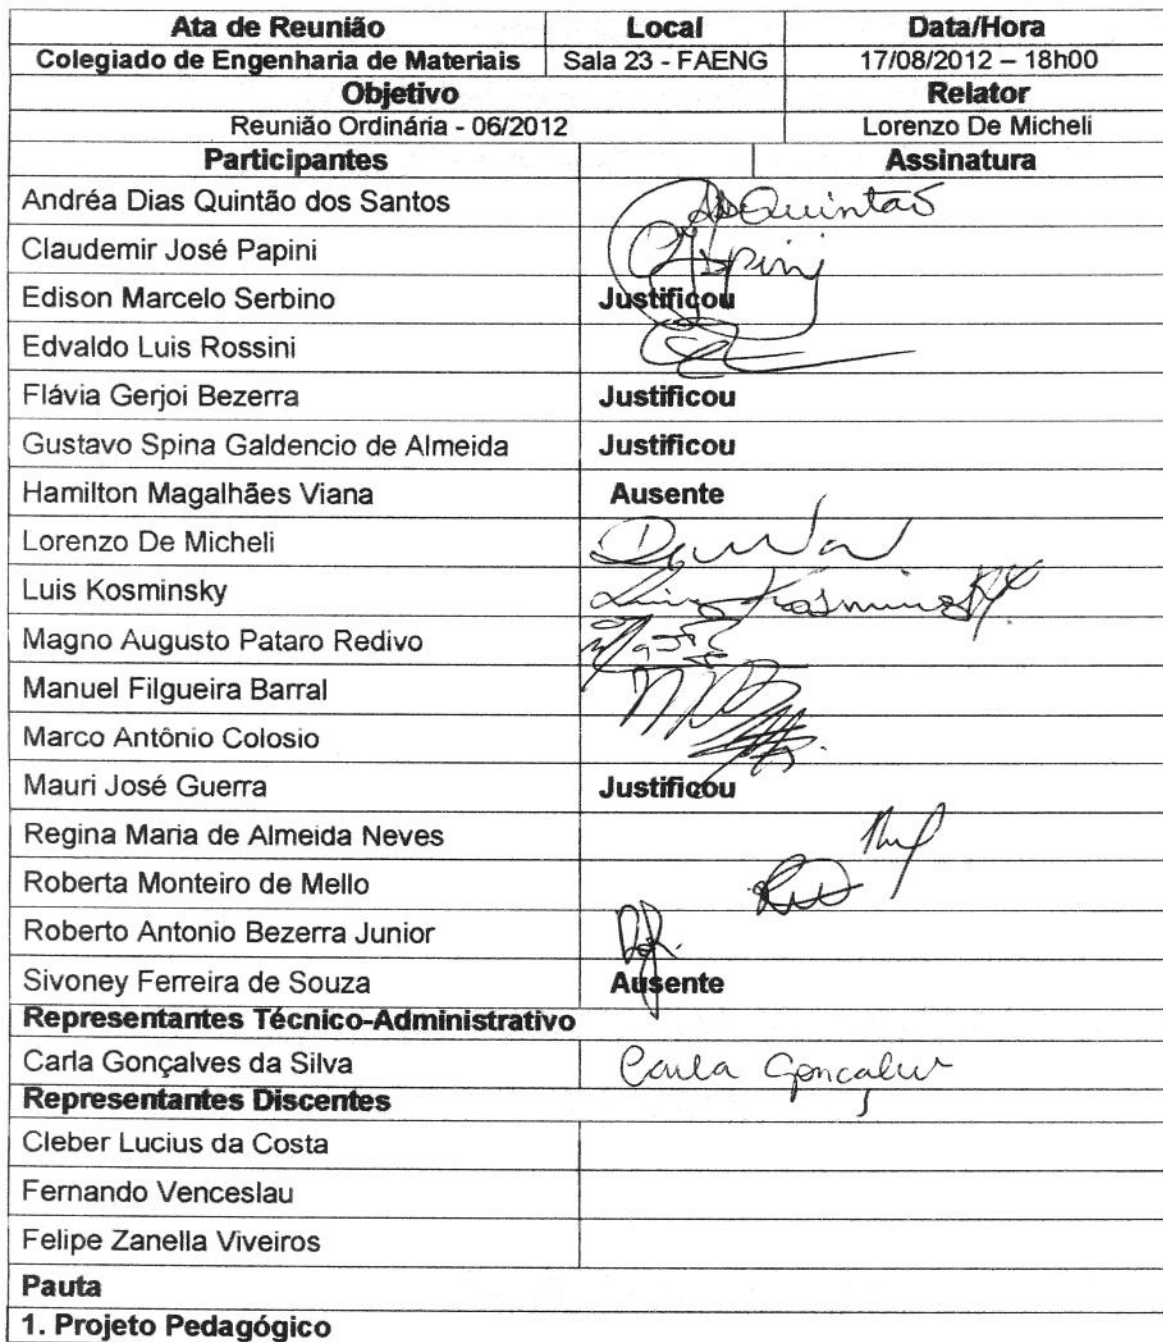 Ata de Reunião Local Data/Hora
Colegiado de Engenharia de Materiais Sala 23 - FAENG 17/08/2012 – 18h00
Objetivo Relator
Reunião Ordinária - 06/2012 Lorenzo De Micheli
Participantes Assinatura
Andréa Dias Quintão dos Santos Quintão
Claudemir José Papini Papini
Edison Marcelo Serbino Justificou
Edvaldo Luis Rossini
Flávia Gerjoi Bezerra Justificou
Gustavo Spina Galdencio de Almeida Justificou
Hamilton Magalhães Viana Ausente
Lorenzo De Micheli
Luis Kosminsky
Magno Augusto Pataro Redivo
Manuel Filgueira Barral
Marco Antônio Colosio
Mauri José Guerra Justificou
Regina Maria de Almeida Neves
Roberta Monteiro de Mello
Roberto Antonio Bezerra Junior
Sivoney Ferreira de Souza Ausente
Representantes Técnico-Administrativo
Carla Gonçalves da Silva Carla Gonçalves
Representantes Discentes
Cleber Lucius da Costa
Fernando Venceslau
Felipe Zanella Viveiros
Pauta
1. Projeto Pedagógico